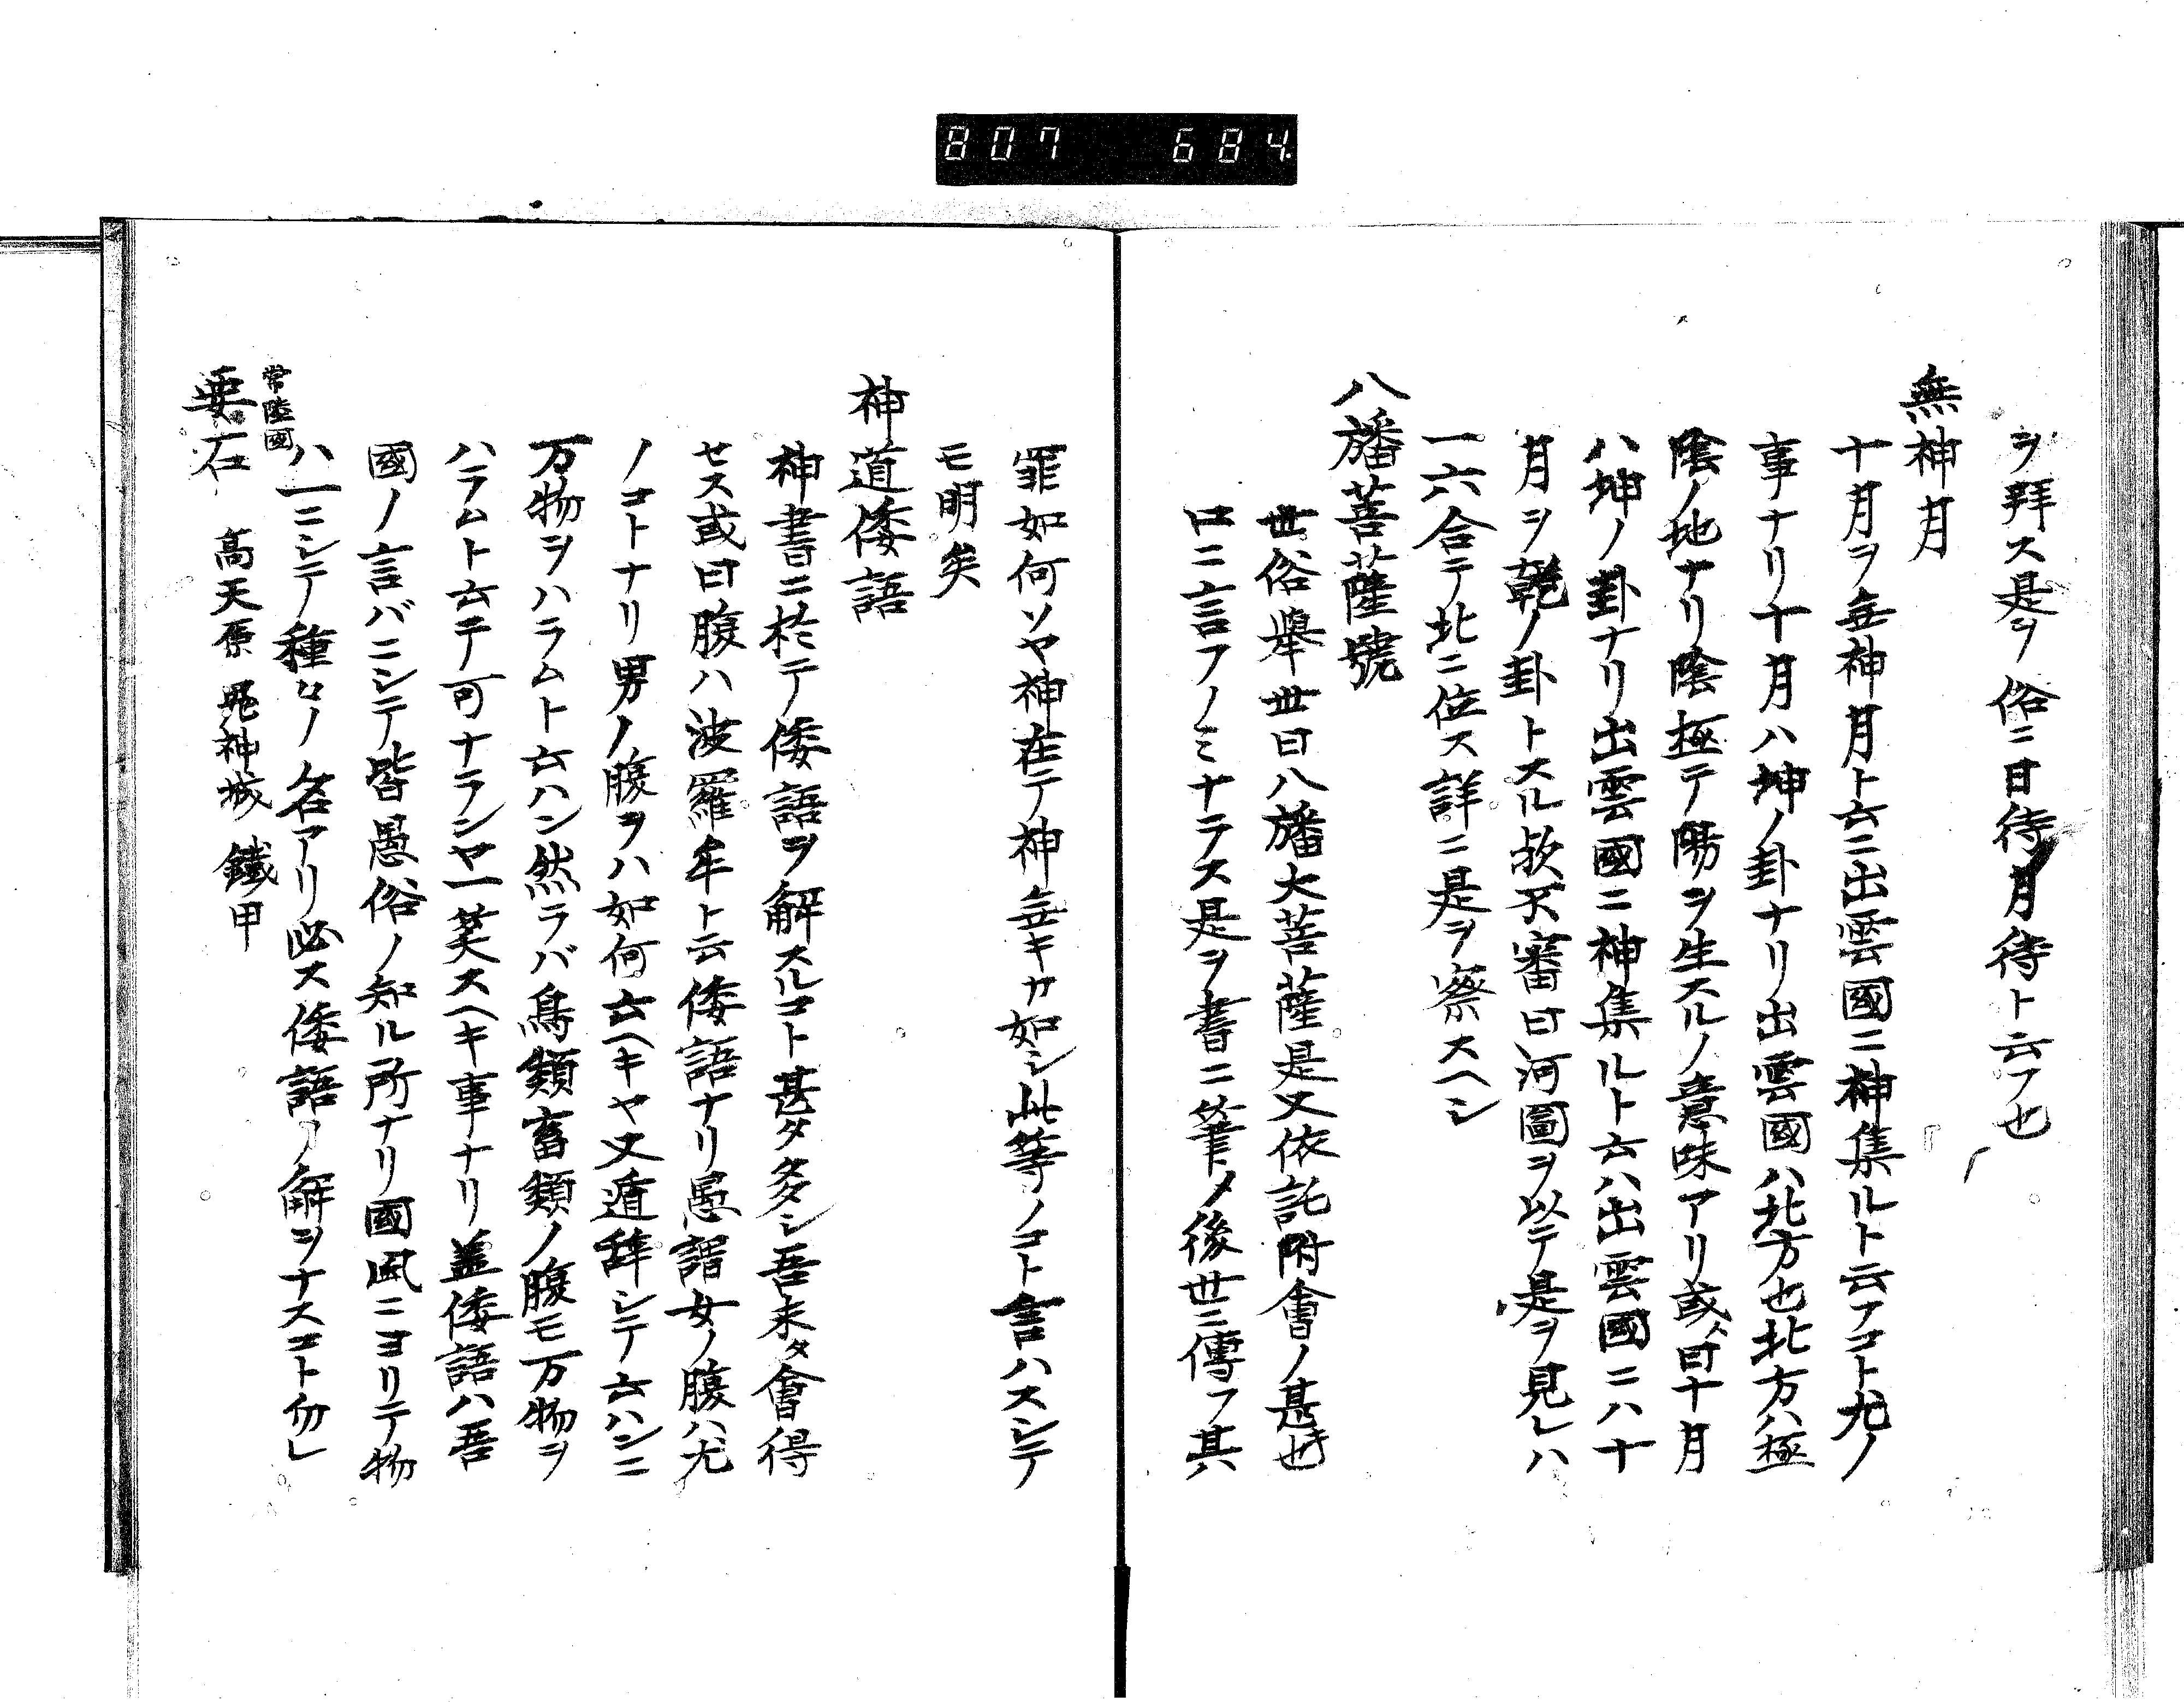 807 684
ヲ拜ス是ヲ俗ニ日待月待ト云フ也
無神月
十月ヲ無神月ト云ニ出雲國ニ神集ルト云フコト尤ノ
事ナリ十月ハ坤ノ卦ナリ出雲國ハ北方也北方ハ極
陰ノ地ナリ陰極テ陽ヲ生スルノ意味アリ或曰十月
ハ坤ノ卦ナリ出雲國ニ神集ルト云ハ出雲國ニハ十
月ヲ乾ノ卦トスル故不審曰河圖ヲ以テ是ヲ見レハ
一六合テ北ニ位ス詳ニ是ヲ察スヘシ
八旛菩薩號
世俗舉世曰八旛大菩薩是又依託附會ノ甚也
口ニ言フノミナラス是ヲ書ニ筆メ後世ニ傳フ其
罪如何ソヤ神在テ神無キカ如シ此等ノコト言ハスシテ
モ明矣
神道倭語
神書ニ於テ倭語ヲ解スルコト甚タ多シ吾未タ會得
セス或曰腹ハ波羅牟ト云倭語ナリ愚謂女ノ腹ハ尤
ノコトナリ男ノ腹ヲハ如何云ヘキヤ又遁辞シテ云ハンニ
万物ヲハラムト云ハン然ラバ鳥類畜類ノ腹モ万物ヲ
ハラムト云テ可ナランヤ一笑スヘキ事ナリ蓋倭語ハ吾
國ノ言バニシテ皆愚俗ノ知ル所ナリ國風ニヨリテ物
ハ一ニシテ種々ノ名アリ必ス倭語ノ解ヲナスコト勿レ
常陸國
要石 高天原 鬼神城 鐵甲